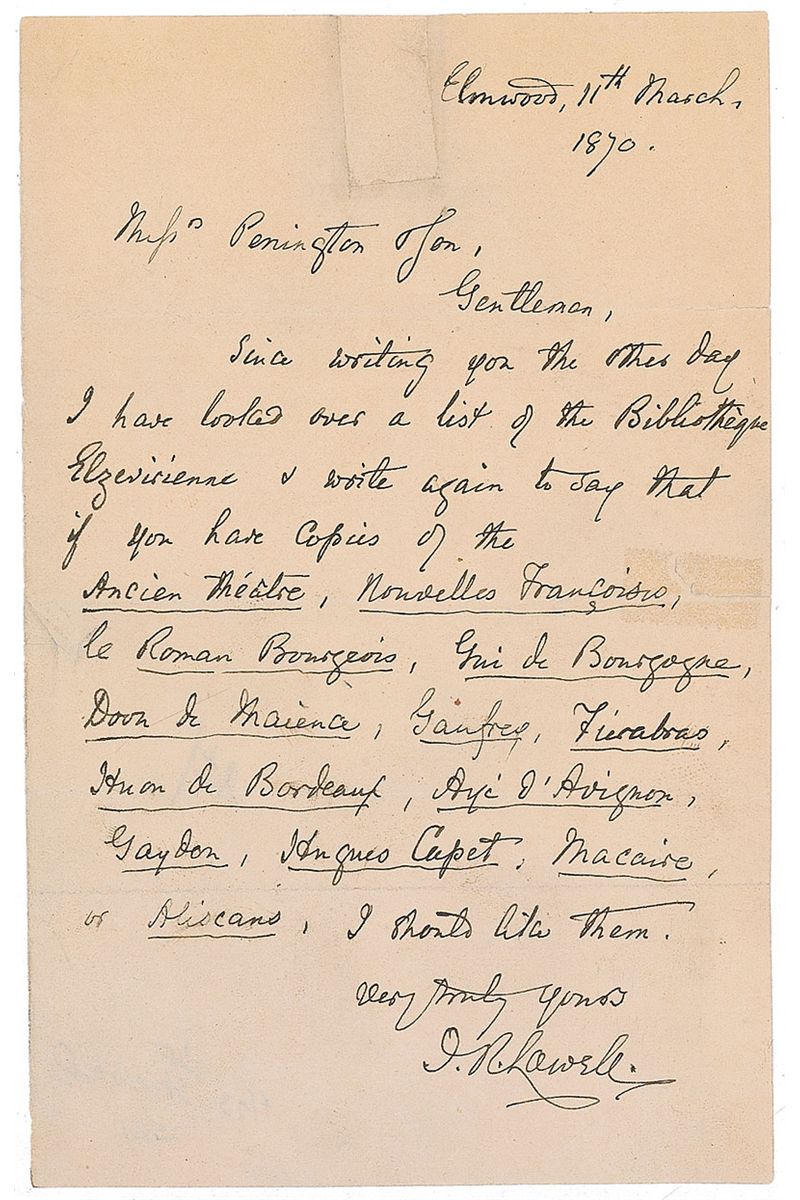 Elmwood, 11th March,
1870.
Messrs Penington & Son,
Gentlemen,
Since writing you the other day
I have looked over a list of the Bibliothèque
Elzevirienne & write again to say that
if you have copies of the
Ancien théâtre, Nouvelles Françoises,
le Roman Bourgeois, Gui de Bourgogne,
Doon de Maience, Gaufrey, Fierabras,
Huon de Bordeaux, Ayé d'Avignon,
Gaydon, Hugues Capet, Macaire,
or Aliscans, I should like them.
Very truly yours
J. R. Lowell.